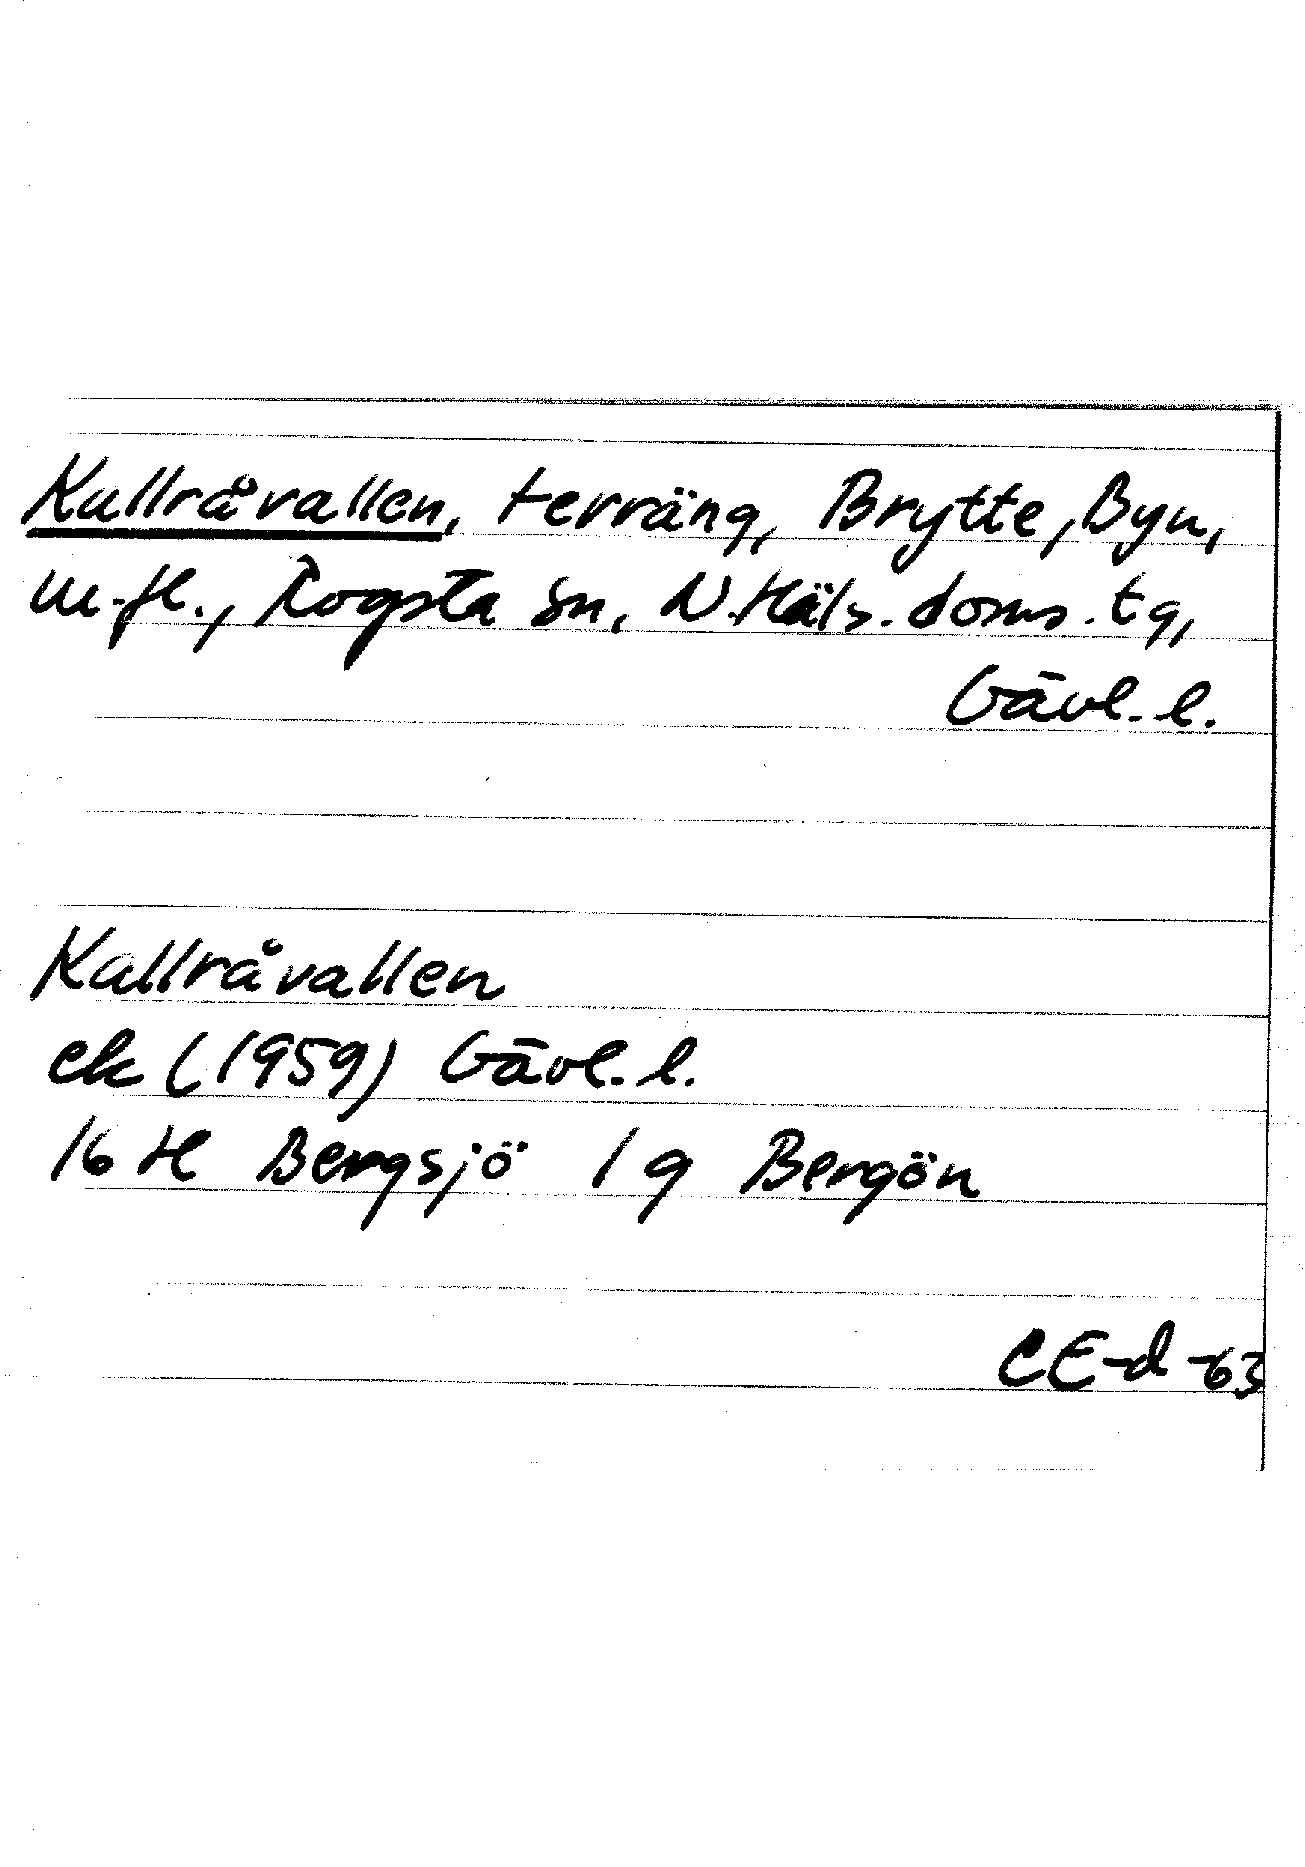 Kallråvallen, terräng, Brytte, Byn,
m.fl., Rogsta sn, N.Häls. doms. tg,
Gävl. l.
Kallråvallen
ek (1959) Gävl. l.
16 H Bergsjö 1 g Bergön
CE-d -63